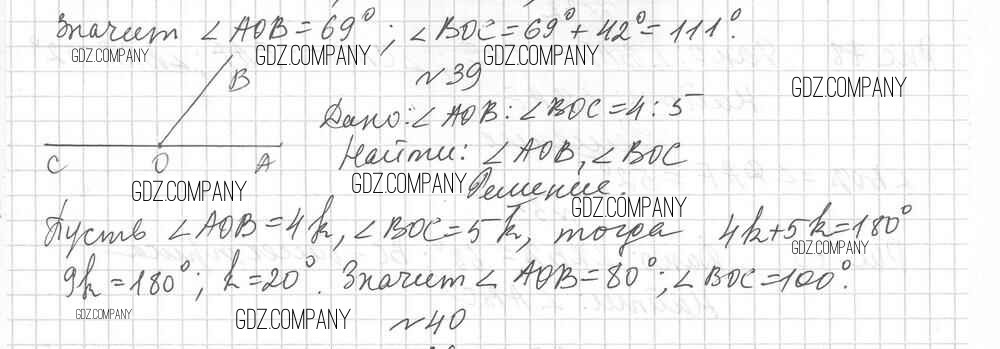 Значит ∠AOB = 69°; ∠BOC = 69° + 42° = 111°.
GDZ.COMPANY GDZ.COMPANY GDZ.COMPANY
B
№39
GDZ.COMPANY
Дано: ∠AOB : ∠BOC = 4 : 5
C O A
Найти: ∠AOB, ∠BOC
GDZ.COMPANY GDZ.COMPANY
Решение.
GDZ.COMPANY
Пусть ∠AOB = 4k, ∠BOC = 5k, тогда 4k + 5k = 180°
GDZ.COMPANY
9k = 180°; k = 20°. Значит ∠AOB = 80°; ∠BOC = 100°.
GDZ.COMPANY GDZ.COMPANY
№40